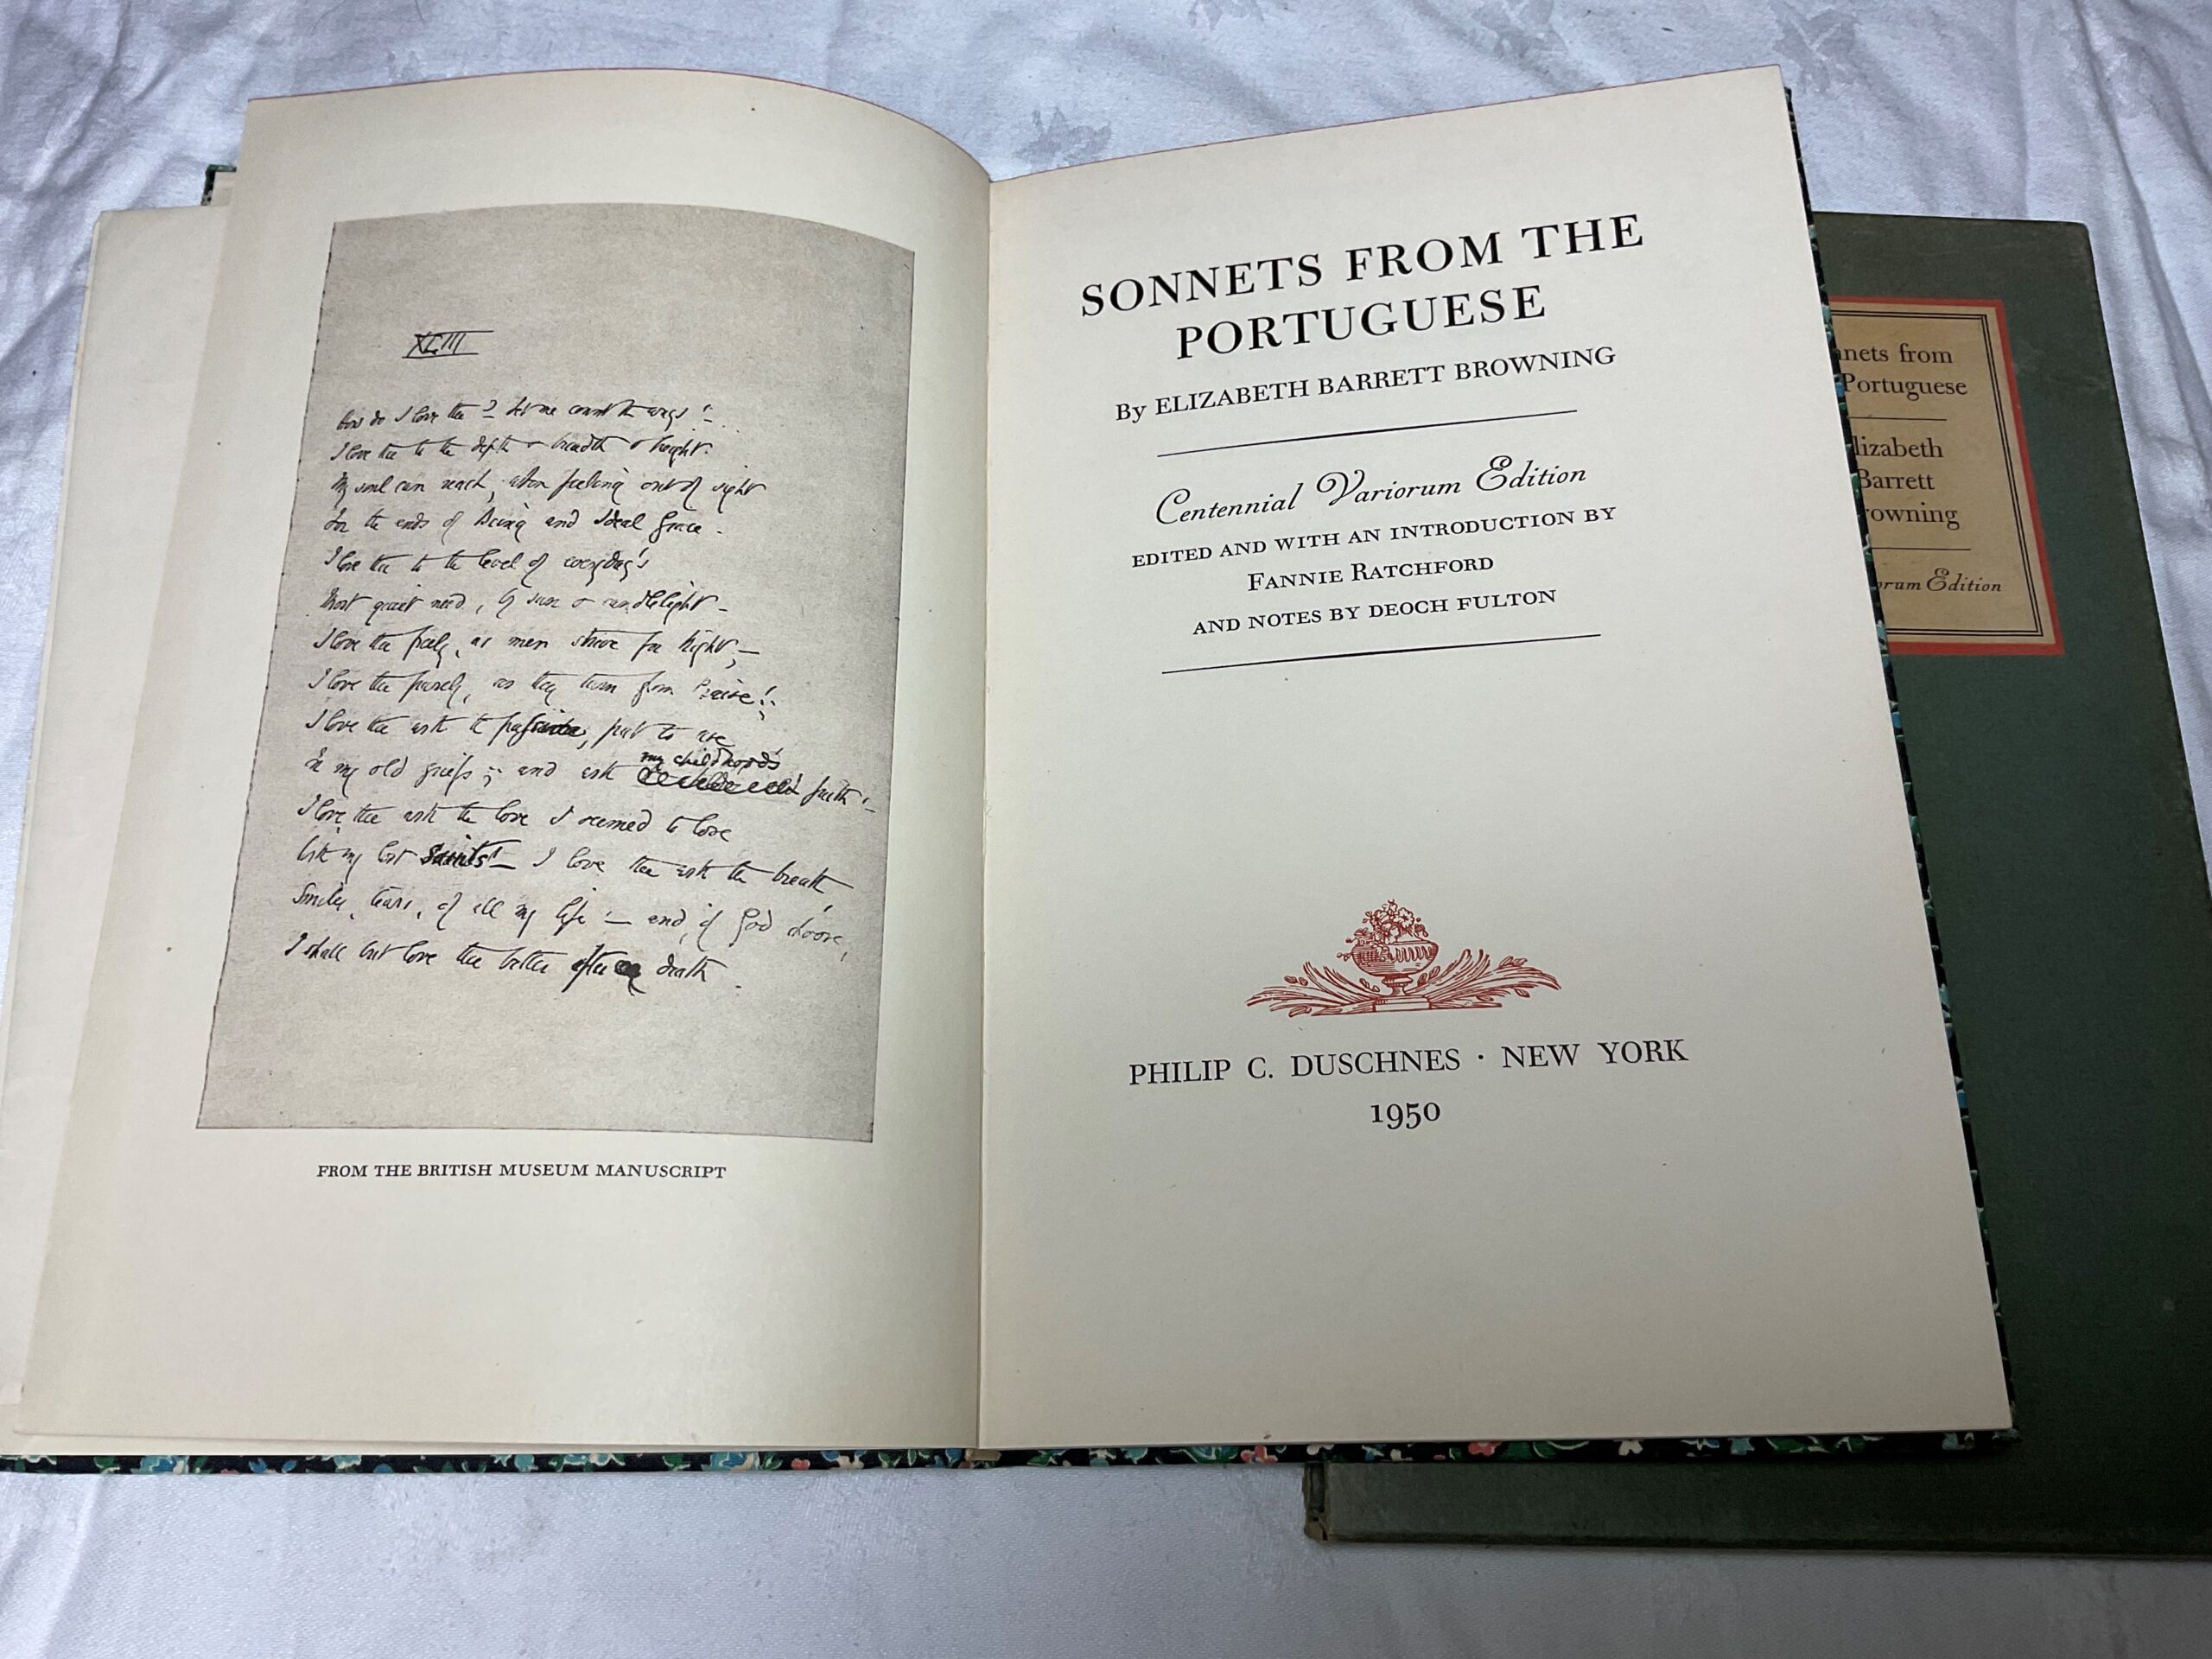 XLIII
How do I love thee? Let me count the ways!—
I love thee to the depth & breadth & height
My soul can reach, when feeling out of sight
For the ends of Being and Ideal Grace.
I love thee to the level of everyday's
Most quiet need, by sun & candlelight—
I love thee freely, as men strive for Right,—
I love thee purely, as they turn from Praise!
I love thee with the passion, put to use
my childhood's
In my old griefs; and with faith:—
I love thee with the love I seemed to lose
With my lost Saints!— I love thee with the breath,
Smiles, tears, of all my life!— and, if God choose,
I shall but love thee better after death.
FROM THE BRITISH MUSEUM MANUSCRIPT
SONNETS FROM THE
PORTUGUESE
By ELIZABETH BARRETT BROWNING
Centennial Variorum Edition
EDITED AND WITH AN INTRODUCTION BY
FANNIE RATCHFORD
AND NOTES BY DEOCH FULTON
PHILIP C. DUSCHNES · NEW YORK
1950
nnets from
Portuguese
lizabeth
Barrett
rowning
orum Edition